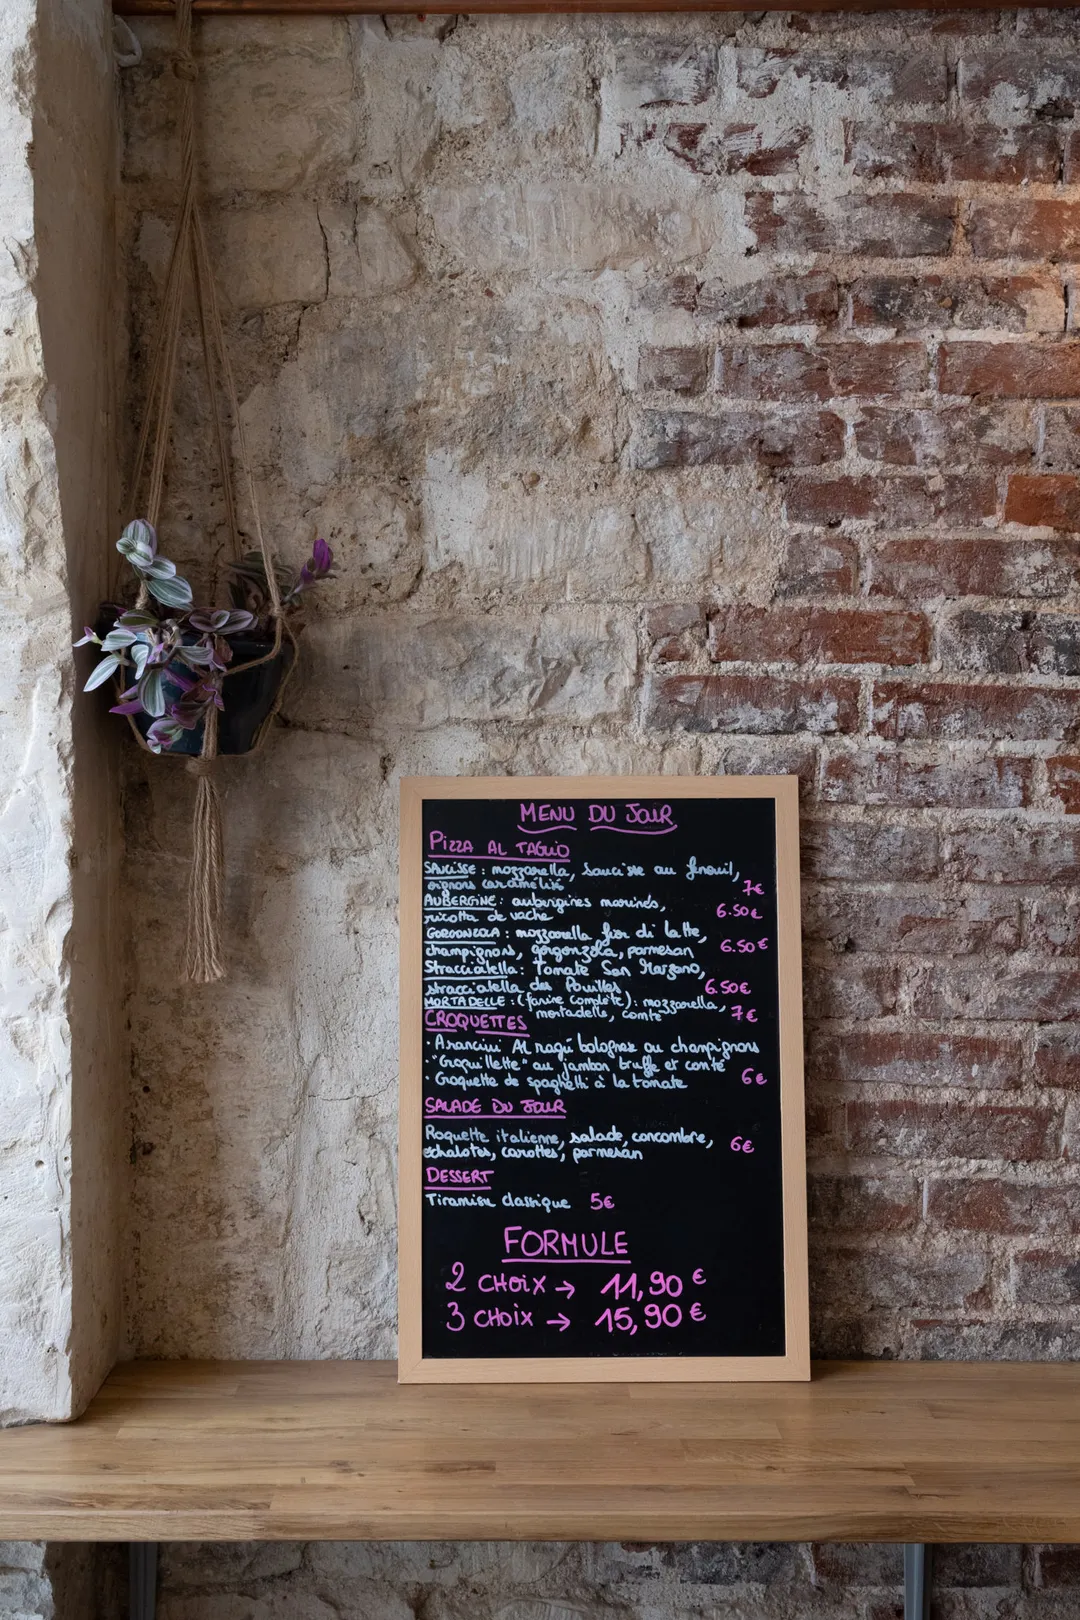 MENU DU JOUR
PIZZA AL TAGLIO
SAUCISSE : mozzarella, saucisse au fenouil,
oignons caramélisé 7€
AUBERGINE : aubergines marinés,
ricotta de vache 6.50€
GORGONZOLA : mozzarella fior di latte,
champignons, gorgonzola, parmesan 6.50€
Stracciatella : Tomate San Marzano,
stracciatella des Pouilles 6.50€
MORTADELLE : (farine complète) : mozzarella,
mortadelle, comté 7€
CROQUETTES
· Arancini Al ragú bolognez ou champignons
· "Croquillette" au jambon truffe et comté
· Croquette de spaghetti à la tomate 6€
SALADE DU JOUR
Roquette italienne, salade, concombre,
échalotes, carottes, parmesan 6€
DESSERT
Tiramisu classique 5€
FORMULE
2 CHOIX → 11,90 €
3 CHOIX → 15,90 €